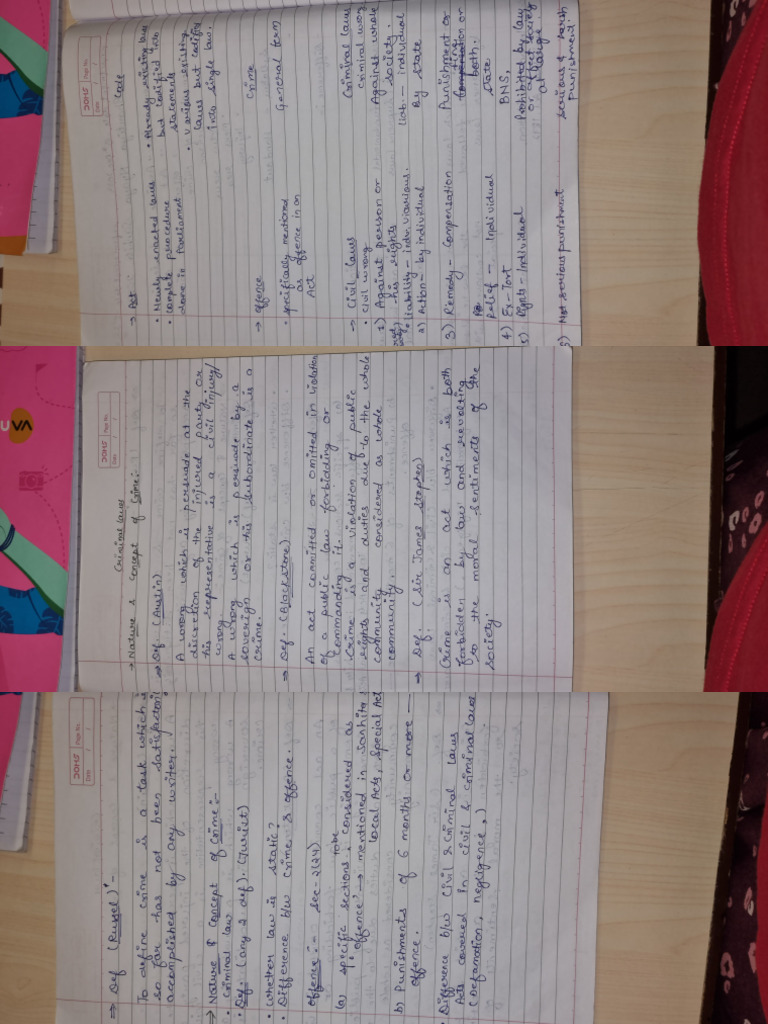 Criminal laws
→ Nature & concept of Crime:
→ Def. (Austin)
A wrong which is persuade at the
discretion of the injured party or
his representative is a civil injury/
wrong.
A wrong which is persuade by a
soverign or his subordinate is a
crime.
→ Def. (Blackstone)
An act committed or omitted in violation
of a public law forbidding or
commanding it.
Crime is a violation of public
rights and duties due to the whole
community considered as whole
community.
→ Def: (Sir James Stephen)
Crime is an act which is both
forbidden by law and revolting
to the moral sentiments of the
society.
⇒ Def (Russel):-
To define crime is a task which is
so far has not been satisfactorily
accomplished by any writer.
→ Nature & Concept of Crime:-
• Criminal law
• Def: (any 2 def). (Jurist)
• Whether law is static?
• Difference b/w crime & offence.
Offence:- sec-2(24)
(a) specific sections, to be considered as
"offence" → mentioned in Sanhita,
local Acts, special Act
b) Punishments of 6 months or more —
offence.
• Difference b/w Civil & Criminal laws
Acts covered in civil & criminal laws
(Defamation, negligence,)
→ Act Code
• Newly enacted laws • Already existing but
• complete procedure bad codified into
done in Parliament statements
• various existing
laws but codify
into single law.
→ Offence Crime
• specifically mentioned General term
as offence in an
Act
→ Civil laws Criminal laws
• Civil wrong criminal wrong
1) Against person or Against whole
his rights society.
• liability - liab. - individual
2) Action - by individual By state
3) Remedy - Compensation Punishment or
fine or
both.
Relief - Individual State
4) Ex - Tort BNS,
5) Rights - Individual Prohibited by law
or affect society
at large.
6) Not serious punishment serious & harsh
punishment